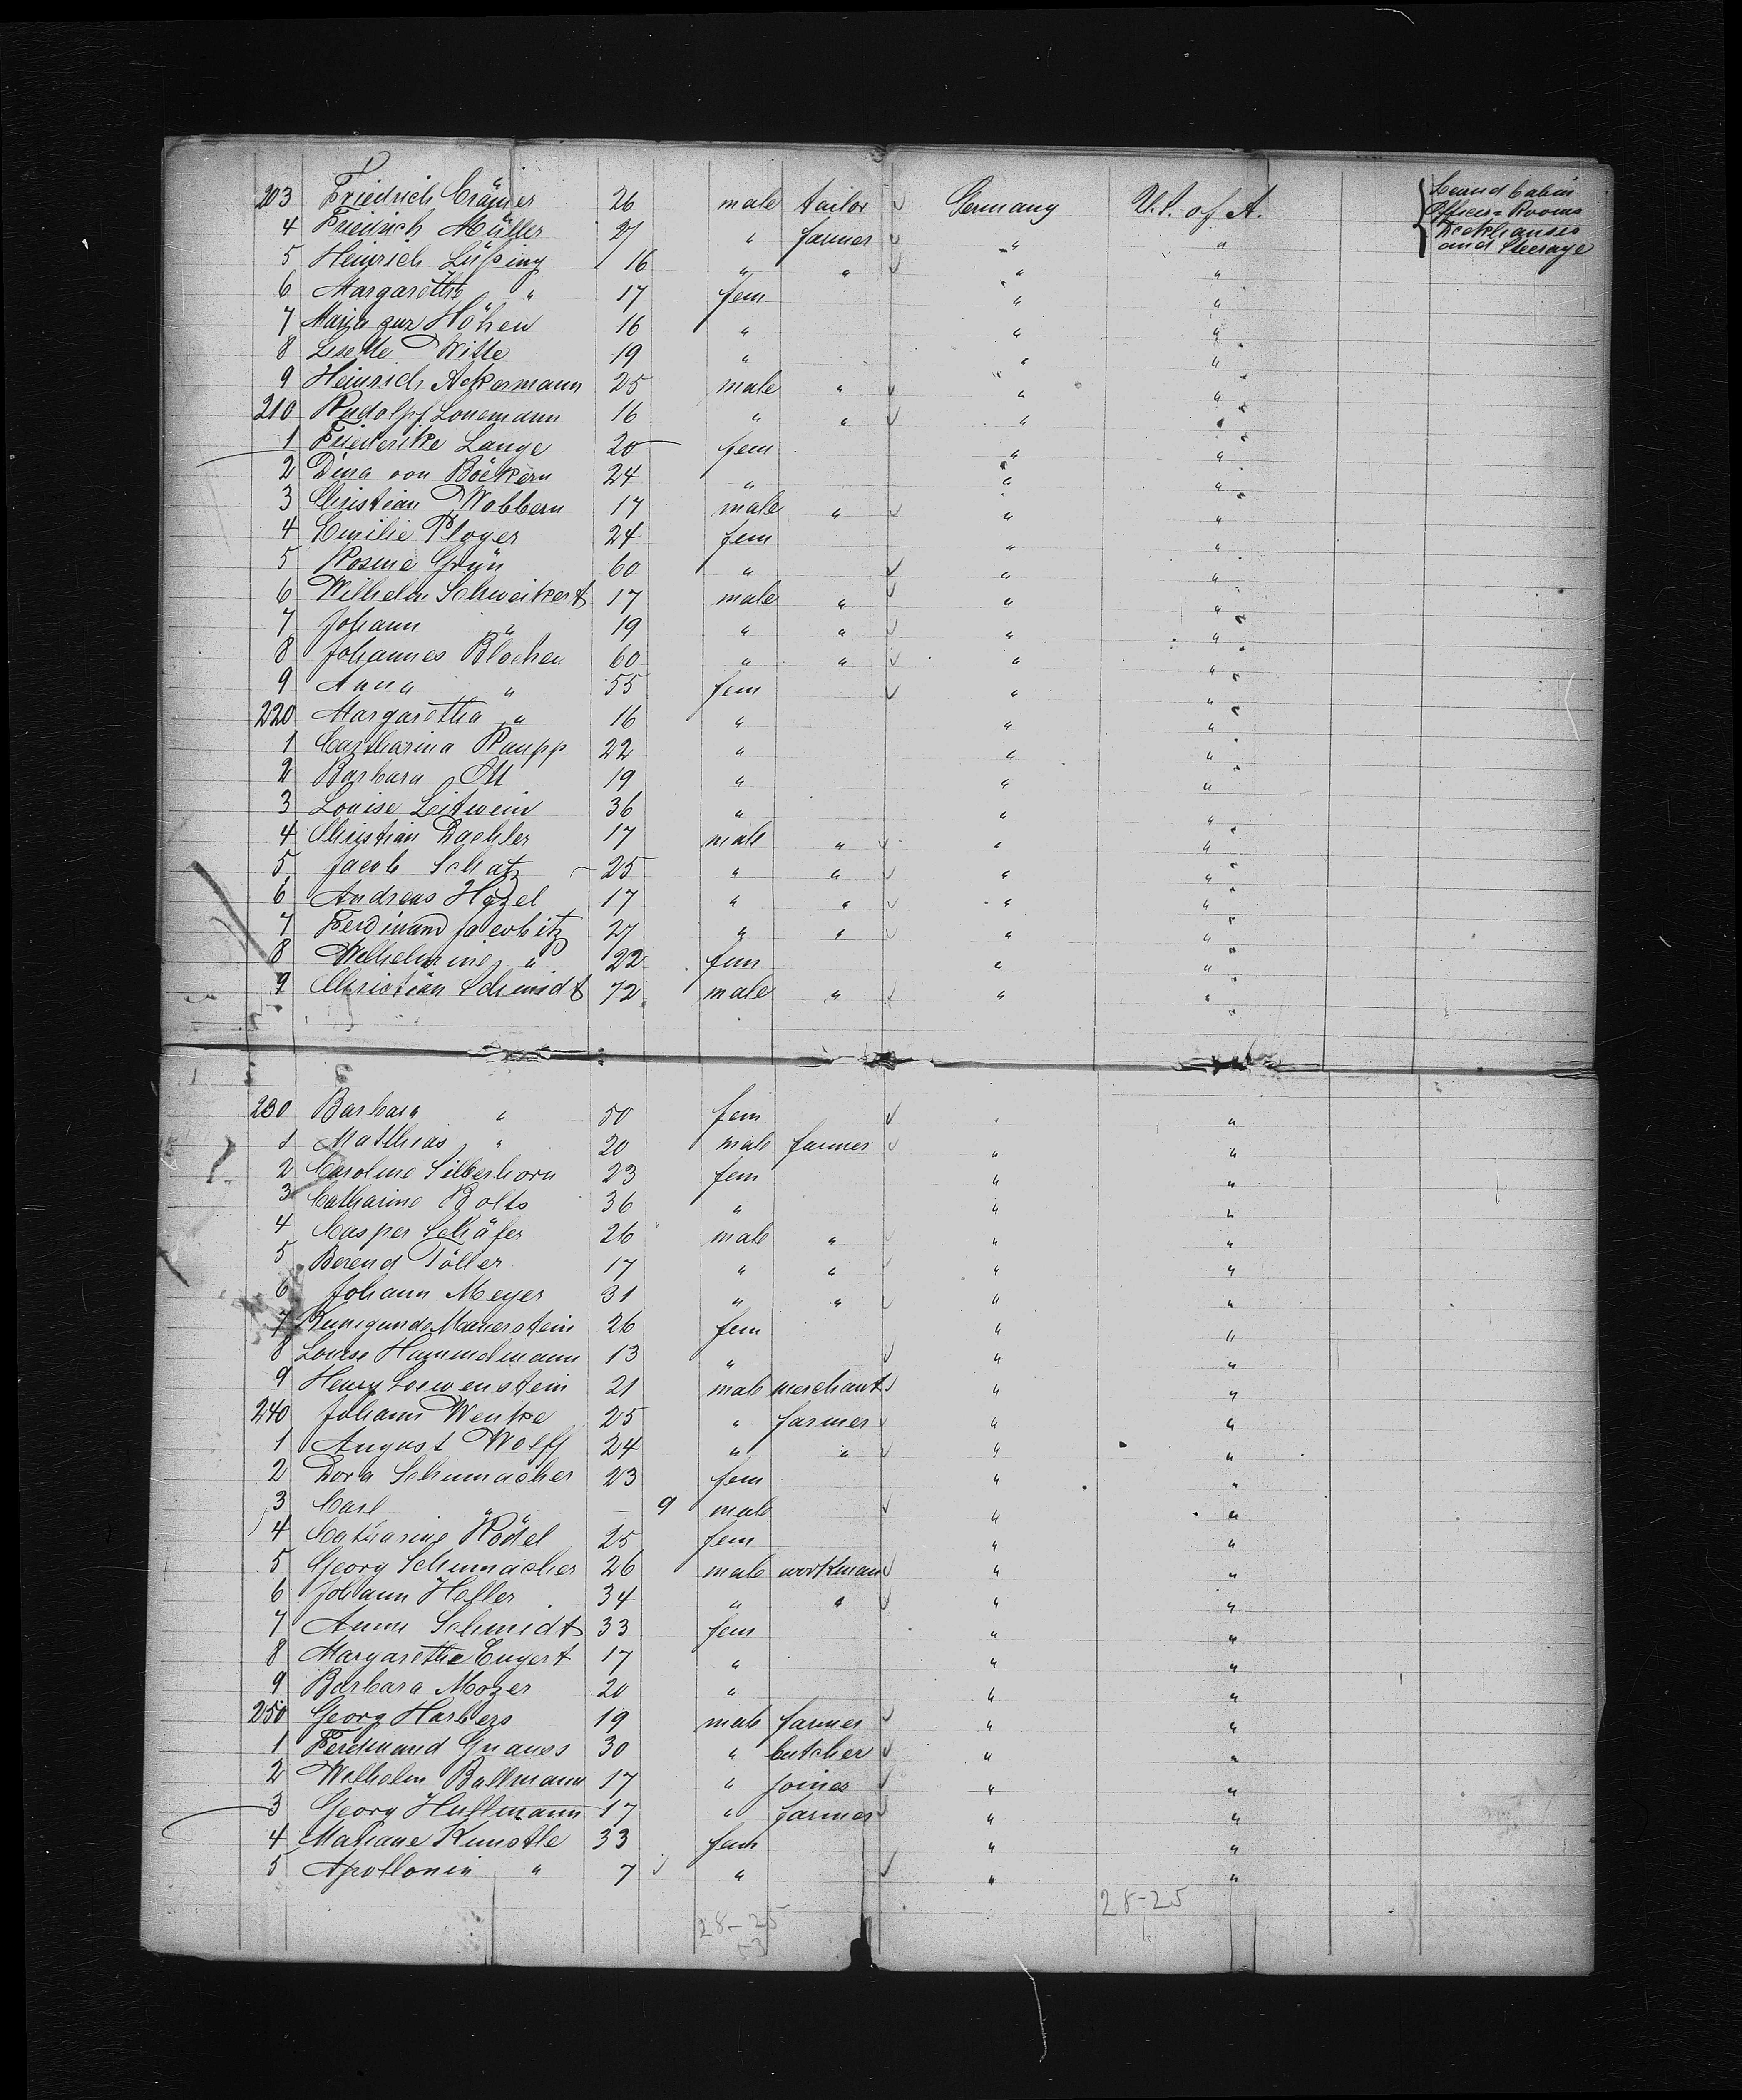 203 Friedrich Crämer 26 male tailor Germany U.S. of A. Second Cabin
4 Friedrich Müller 27 " farmer " " Officers=Rooms
5 Heinrich Lüßing 16 " " " " Deckhouses
6 Margarethe " 17 fem " " and Steerage
7 Maria zur Höhen 16 " " "
8 Lisette Witte 19 " " "
9 Heinrich Ackermann 25 male " " "
210 Rudolph Lonemann 16 " " " "
1 Friederike Lange 20 fem " "
2 Dina von Böckern 24 " " "
3 Christian Wobbern 17 male " " "
4 Emilie Ployer 24 fem " "
5 Rosine Grün 60 " " "
6 Wilhelm Schweikert 17 male " " "
7 Johann " 19 " " " "
8 Johannes Blochen 60 " " " "
9 Anna " 55 fem " "
220 Margaretha " 16 " " "
1 Catharina Raupp 22 " " "
2 Barbara Ott 19 " " "
3 Louise Leitwein 36 " " "
4 Christian Dachler 17 male " " "
5 Jacob Schatz 25 " " " "
6 Andreas Hözel 17 " " " "
7 Ferdinand Jacobitz 27 " " " "
8 Wilhelmine " 22 fem " "
9 Christian Schmidt 72 male " " "
230 Barbara " 50 fem " "
1 Matthias " 20 male farmer " "
2 Caroline Silberhorn 23 fem " "
3 Catharine Bolts 36 " " "
4 Casper Schäfer 26 male " " "
5 Berend Töller 17 " " " "
6 Johann Meyer 31 " " " "
7 Kunigunde Mauerstein 26 fem " "
8 Louise Hammelmann 13 " " "
9 Henry Loewenstein 21 male merchant " "
240 Johann Wentke 25 " farmer " "
1 August Wolff 24 " " " "
2 Dora Schumacher 23 fem " "
3 Carl " – 9 male " "
4 Catharine Rödel 25 fem " "
5 Georg Schumacher 26 male workman " "
6 Johann Hofler 34 " " " "
7 Anna Schmidt 33 fem " "
8 Margarethe Engert 17 " " "
9 Barbara Mozer 20 " " "
250 Georg Harbers 19 male farmer " "
1 Ferdinand Gnauss 30 " butcher " "
2 Wilhelm Ballmann 17 " joiner " "
3 Georg Hullmann 17 " farmer " "
4 Mariane Kunstle 33 fem " "
5 Apollonia " 7 " " "
28-25 28-25
53